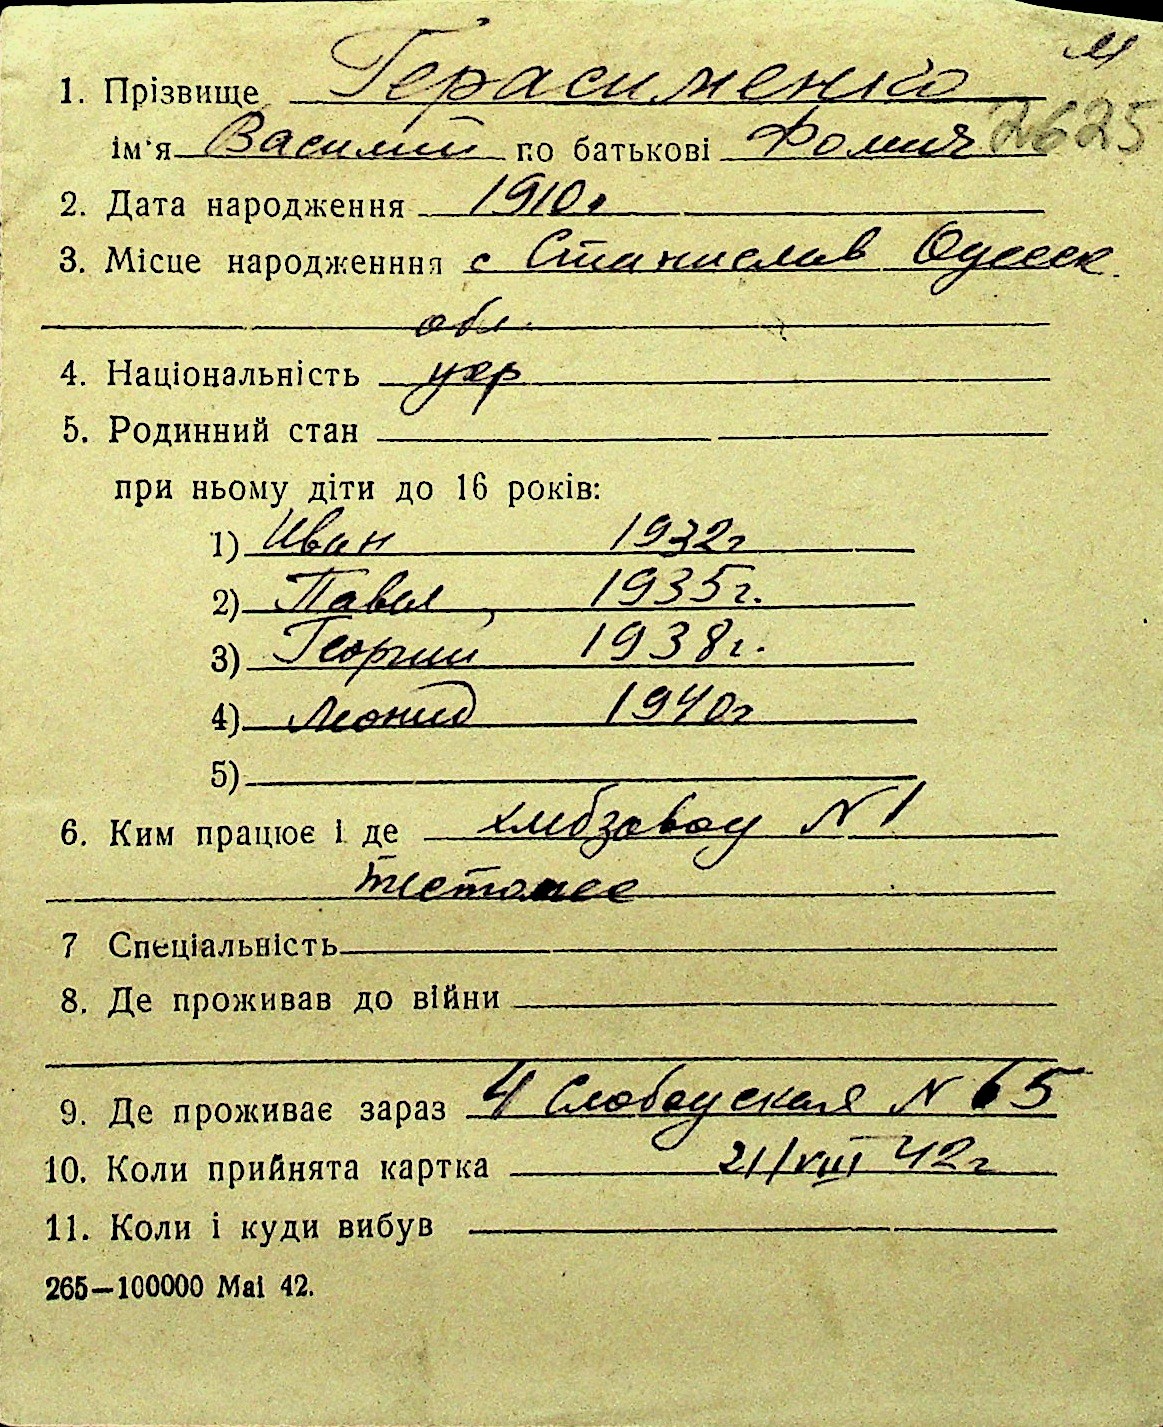 1. Прізвище Герасименко
ім'я Василий по батькові Фомич 2625
2. Дата народження 1910г
3. Місце народженння с Станислав Одесск.
обл.
4. Національність укр
5. Родинний стан
при ньому діти до 16 років:
1) Иван 1932г
2) Павел 1935г.
3) Георгий 1938г.
4) Леонид 1940г
5)
6. Ким працює і де хлебзавод N 1
7 Спеціальність
8. Де проживав до війни
9. Де проживає зараз 4 Слободская N 65
10. Коли прийнята картка 21/VIII 42г
11. Коли і куди вибув
265—100000 Маі 42.